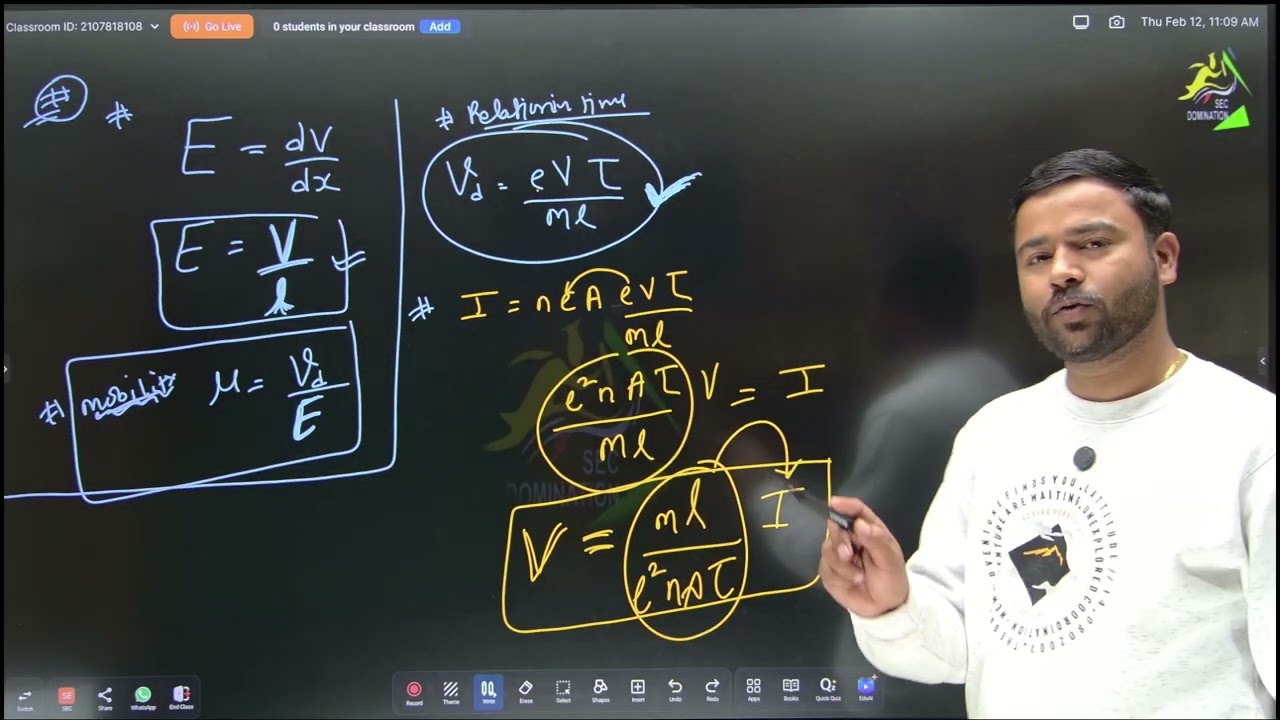 Classroom ID: 2107818108
Go Live
0 students in your classroom
Add
Thu Feb 12, 11:09 AM
SEC
DOMINATION
#
# E = dV/dx
E = V/l
# mobility μ = Vd/E
# Relaxation time
Vd = eVτ/ml
# I = neA eVτ/ml
e²nAτ/ml V = I
V = ml/e²nAτ I
SEC
DOMINATION
Switch
SEC
Share
WhatsApp
End Class
Record
Theme
Write
Erase
Select
Shapes
Insert
Undo
Redo
Apps
Books
Quick Quiz
EduAI